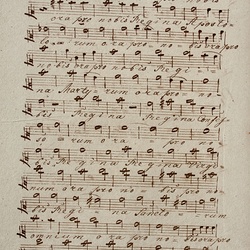 nobis
ora pro nobis Regina Aposto-
lo - rum ora pro no - bis ora pro
nobis ora pro nobis Regi -
na Marty - rum ora pro no -
bis Regina Regina Confes-
so - rum ora pro no
bis Regina Regina Virgi-
num ora pro no - bis pro no-
bis Regi - na Sancto - rum
omnium ora pro no - bis ora pro